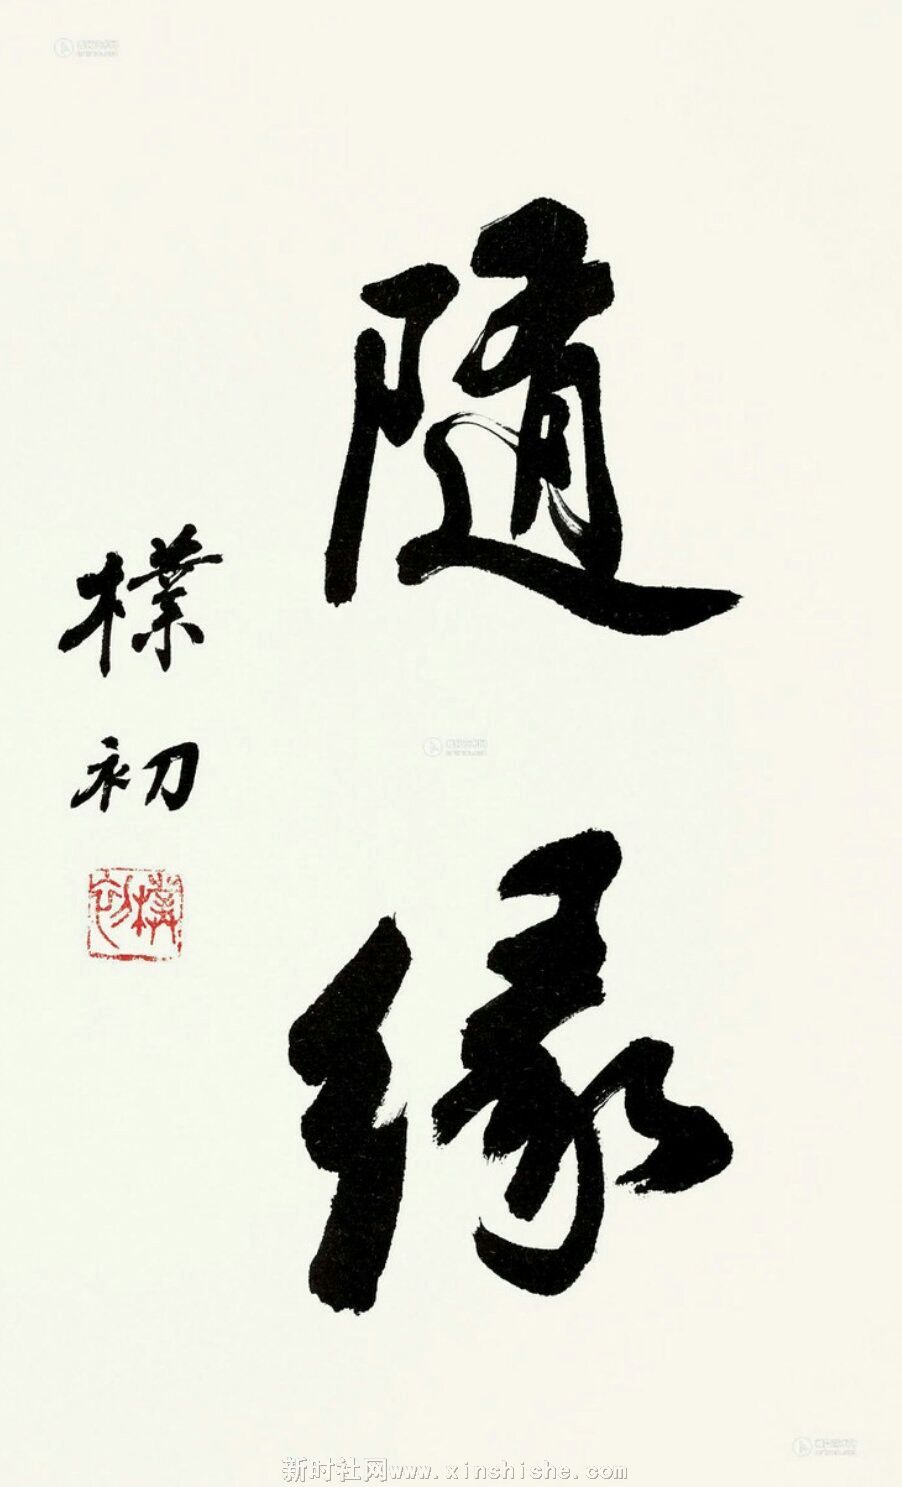 隨緣
樸初
樸初
新时社网www.xinshishe.com